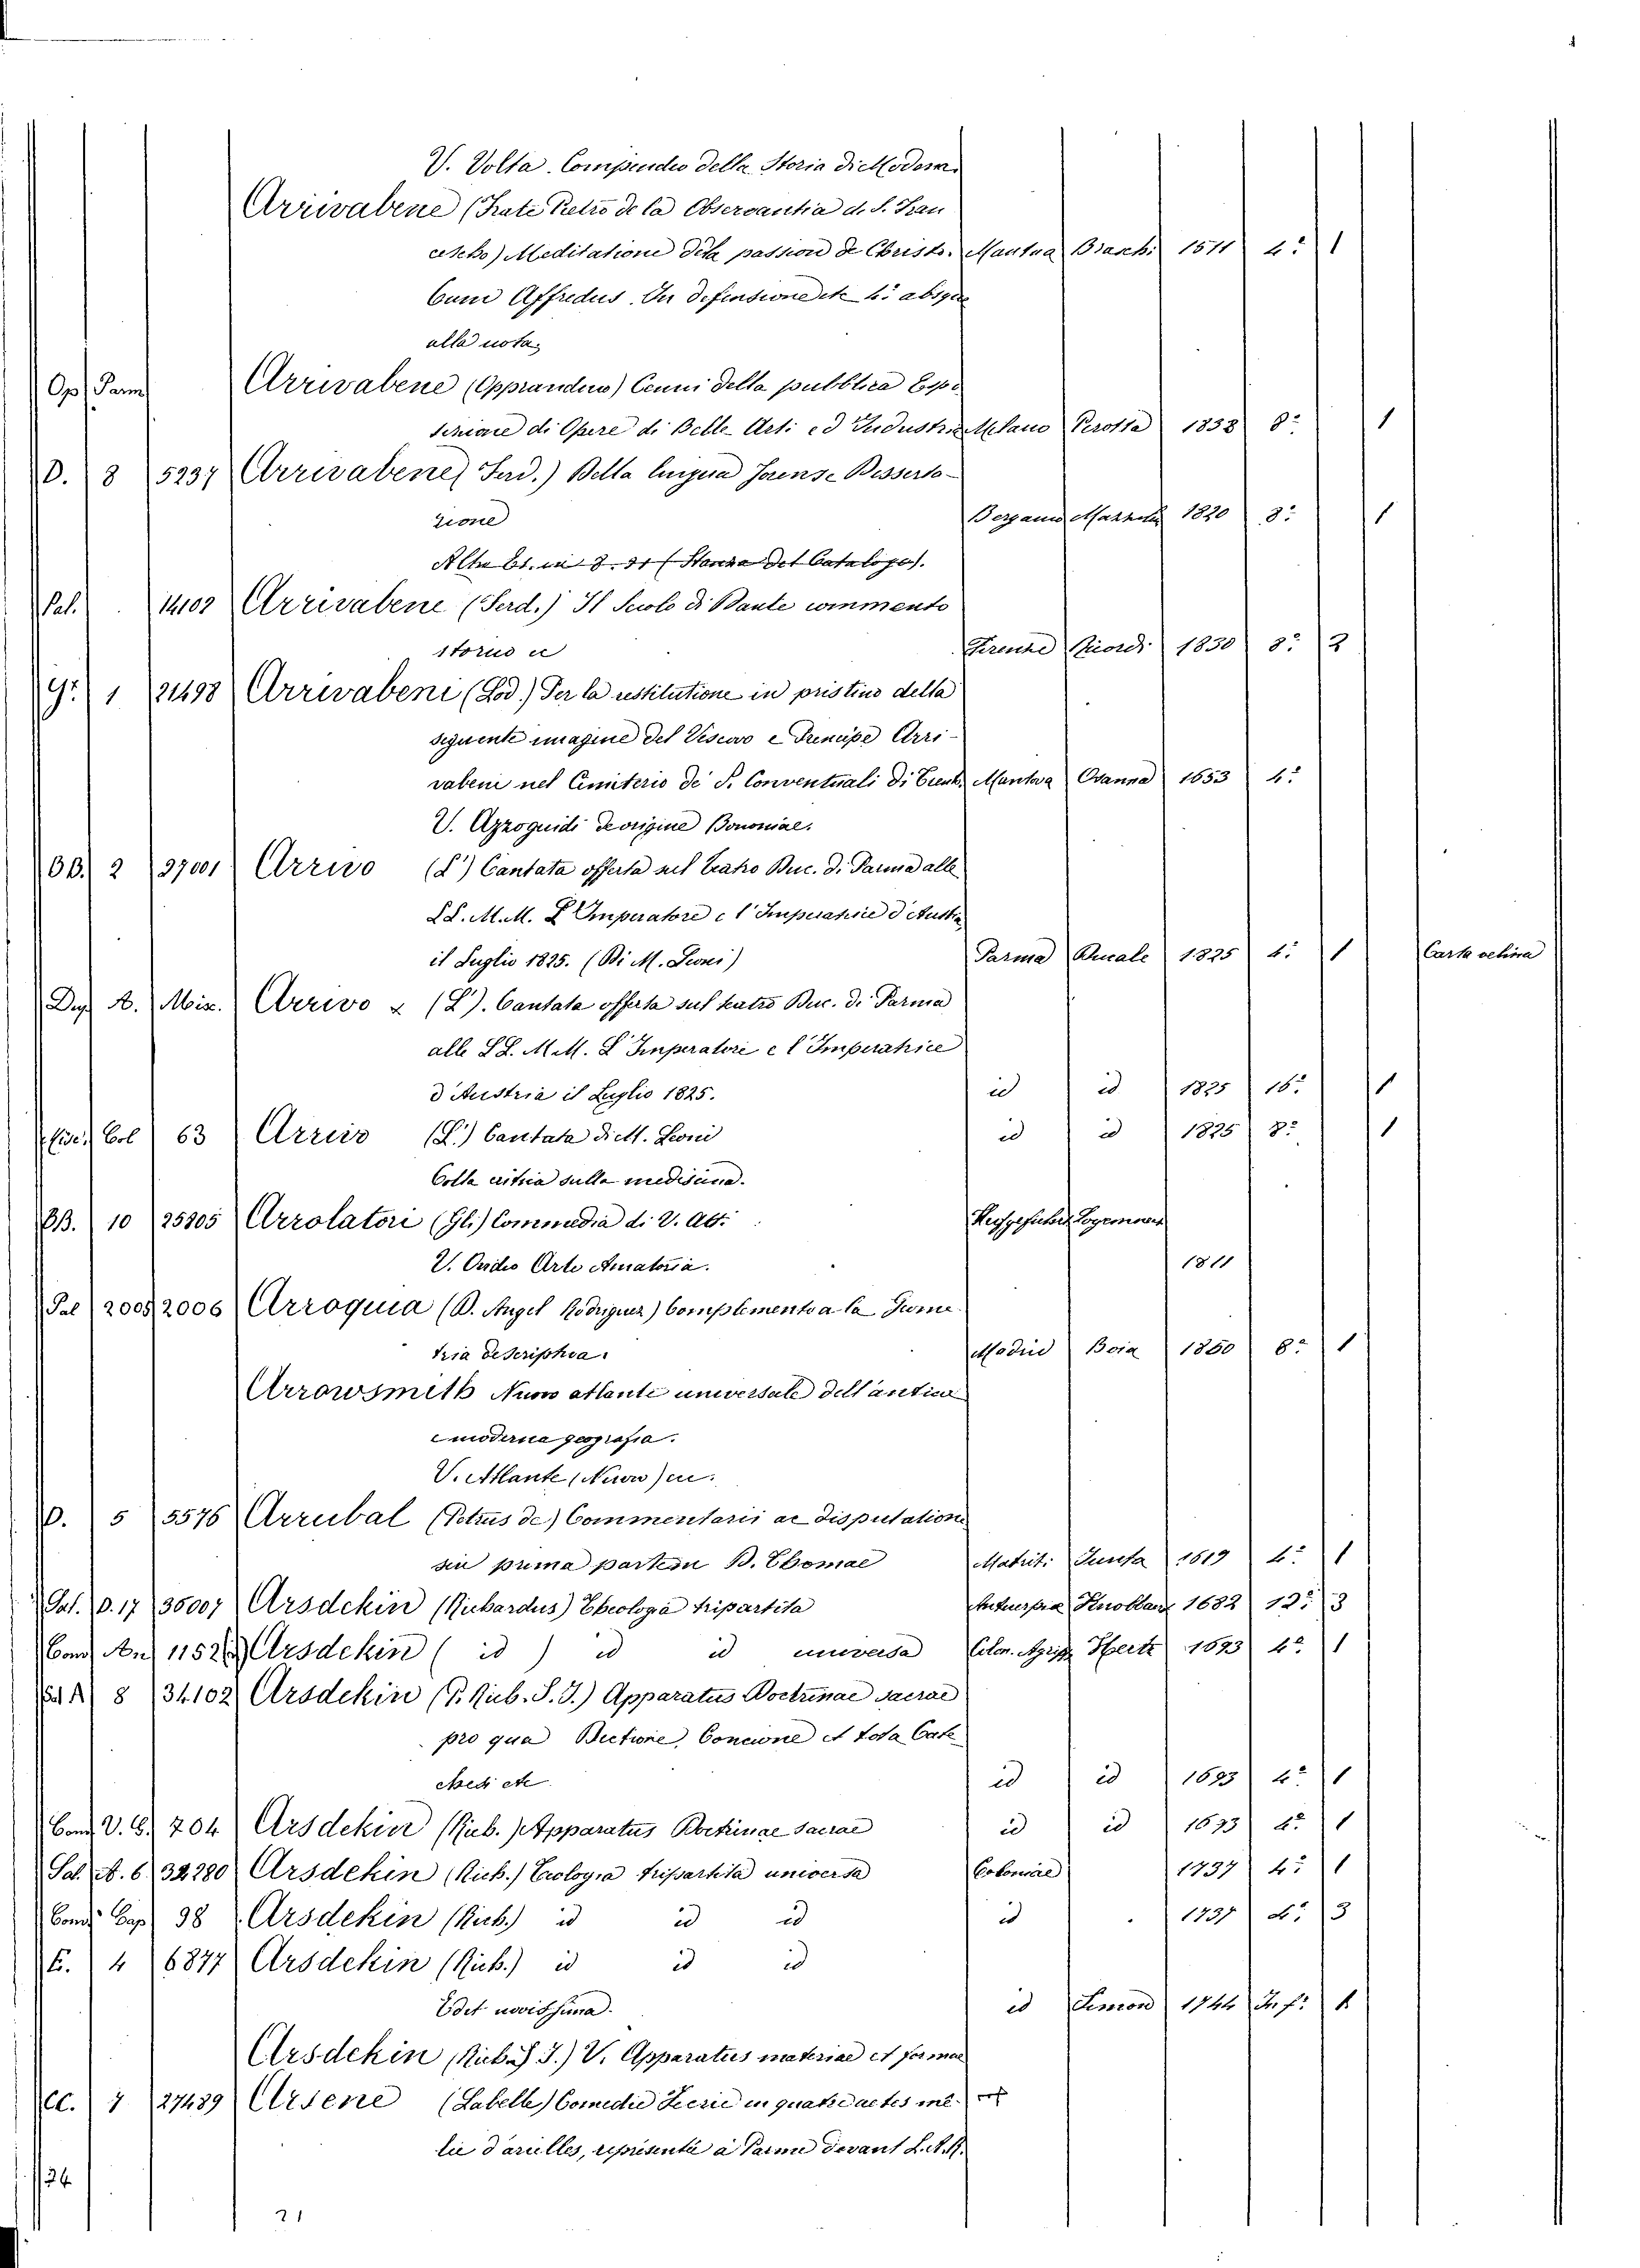 V. Volta. Compendio della Storia di Modena
Arrivabene (Frate Pietro de la Observantia d. S. Fran
cescho) Meditatione dela passion de Christo. Mantua Bruschi 1511 4º 1
Cum Affredus. In defensione etc 4º absque
alla nota
Op. Parm Arrivabene (Opprandino) Cenni della pubblica Espo
sizione di Opere di Belle Arti ed Industria Milano Perotta 1838 8º 1
D. 8 5237 Arrivabene (Ferd.) Della lingua forense Disserta-
zione Bergamo Mazzoleni 1820 8º 1
Altro Es. in 8. 31 (Stanza del Catalogo).
Pal. 14102 Arrivabene (Ferd.) Il Secolo di Dante commento
storico Firenze Ricordi 1830 8º 2
Gr. 1 21498 Arrivabeni (Lod.) Per la restitutione in pristino della
seguente imagine del Vescovo e Principe Arri-
vabeni nel Cimiterio de P. Conventuali di Mantova Osanna 1653 4º
V. Azzoguidi de origine Bononiae.
BB. 2 27001 Arrivo (L') Cantata offerta nel teatro Duc. di Parma alle
LL. M.M. L'Imperatore e l'Imperatrice d'Austria
il Luglio 1825. (Di M. Leoni) Parma Ducale 1825 4º 1 Carta velina
Dup A. Misc. Arrivo (L'). Cantata offerta sul teatro Duc. di Parma
alle LL. M.M. L'Imperatore e l'Imperatrice
d'Austria il Luglio 1825. id id 1825 16º 1
Misc. Col 63 Arrivo (L') Cantata di M. Leoni id id 1825 8º 1
Colla critica sulla medesima.
BB. 10 25205 Arrolatori (Gli) Commedia di 2. Att.
V. Ovidio Arte Amatoria. 1811
Pal 2005 2006 Arroquia (D. Angel Rodriguez) Complemento a la Geome
tria descriptiva. Madrid Boix 1850 8º 1
Arrowsmith Nuovo atlante universale dell'antica
e moderna geografia.
V. Atlante (Nuovo) etc.
D. 5 5576 Arrubal (Petrus de) Commentarii ac disputatione
sin prima partem D. Thomae Matriti Junta 1619 4º 1
Sal. D. 17 36007 Arsdekin (Richardus) Theologia tripartita Antuerpia Knobbaert 1682 12º 3
Cond Anz 1152 Arsdekin ( id ) id id universa Colon. Agripp Hertz 1693 4º 1
Sal A 8 34102 Arsdekin (P. Rich. S. J.) Apparatus Doctrinae sacrae
pro qua Lectione, Concione et tota Cate
chesi etc id id 1693 4º 1
Cond V. C. 704 Arsdekin (Rich.) Apparatus Doctrinae sacrae id id 1693 4º 1
Sal A. 6 32280 Arsdekin (Rich.) Teologia tripartita universa Coloniae 1737 4º 1
Cond Cap 98 Arsdekin (Rich.) id id id id 1737 4º 3
E. 4 6877 Arsdekin (Rich.) id id id
Edit novissima. id Simon 1744 In fº 1
Arsdekin (Rich. S J.) V. Apparatus materiae et formae
CC. 7 27439 Arsene (La belle) Comedie Feerie en quatre actes me-
lée d'ariettes, représentée à Parme devant L.A.R.
24
21